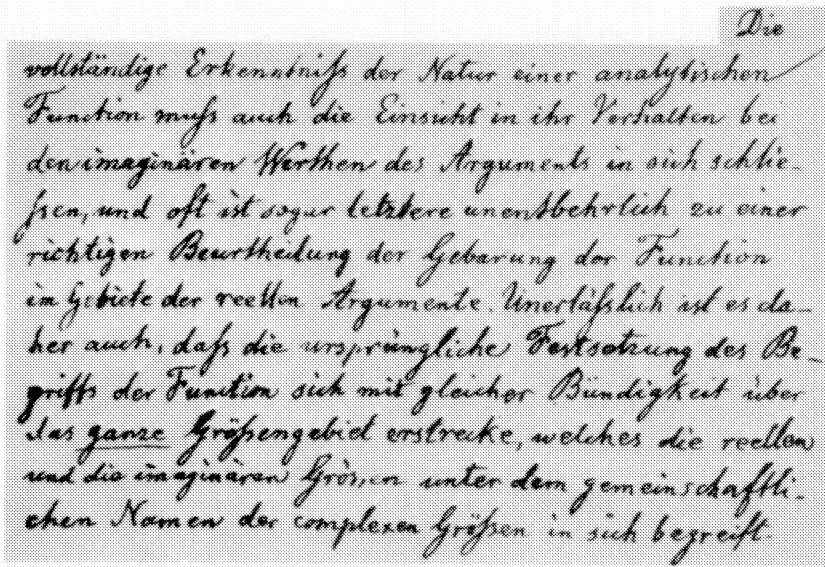 Die
vollständige Erkenntniſs der Natur einer analytischen
Function muſs auch die Einsicht in ihr Verhalten bei
den imaginären Werthen des Arguments in sich schlie-
ſsen, und oft ist sogar letztere unentbehrlich zu einer
richtigen Beurtheilung der Gebarung der Function
im Gebiete der reellen Argumente. Unerläſslich ist es da-
her auch, daſs die ursprüngliche Festsetzung des Be-
griffs der Function sich mit gleicher Bündigkeit über
das ganze Gröſsengebiet erstrecke, welches die reellen
und die imaginären Grössen unter dem gemeinschaftli-
chen Namen der complexen Gröſsen in sich begreift.